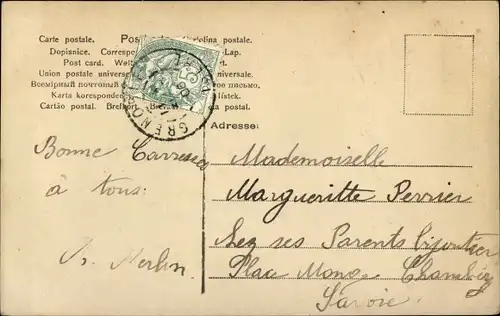 Carte postale. Pos olina postal.
Dopisnice. Correspo -Lap.
Post card. Welt
Union postale univers universale.
Всемірный почтовый ое письмо.
Karta korespond lístek.
Cartão postal. Brefkort postal.
GRENO ISERE
Adresse:
Bonne
à tous:
Mademoiselle
Margueritte Perrier
chez ses Parents bijoutier
Place Monge Chambéry
Savoie.
Merlin.